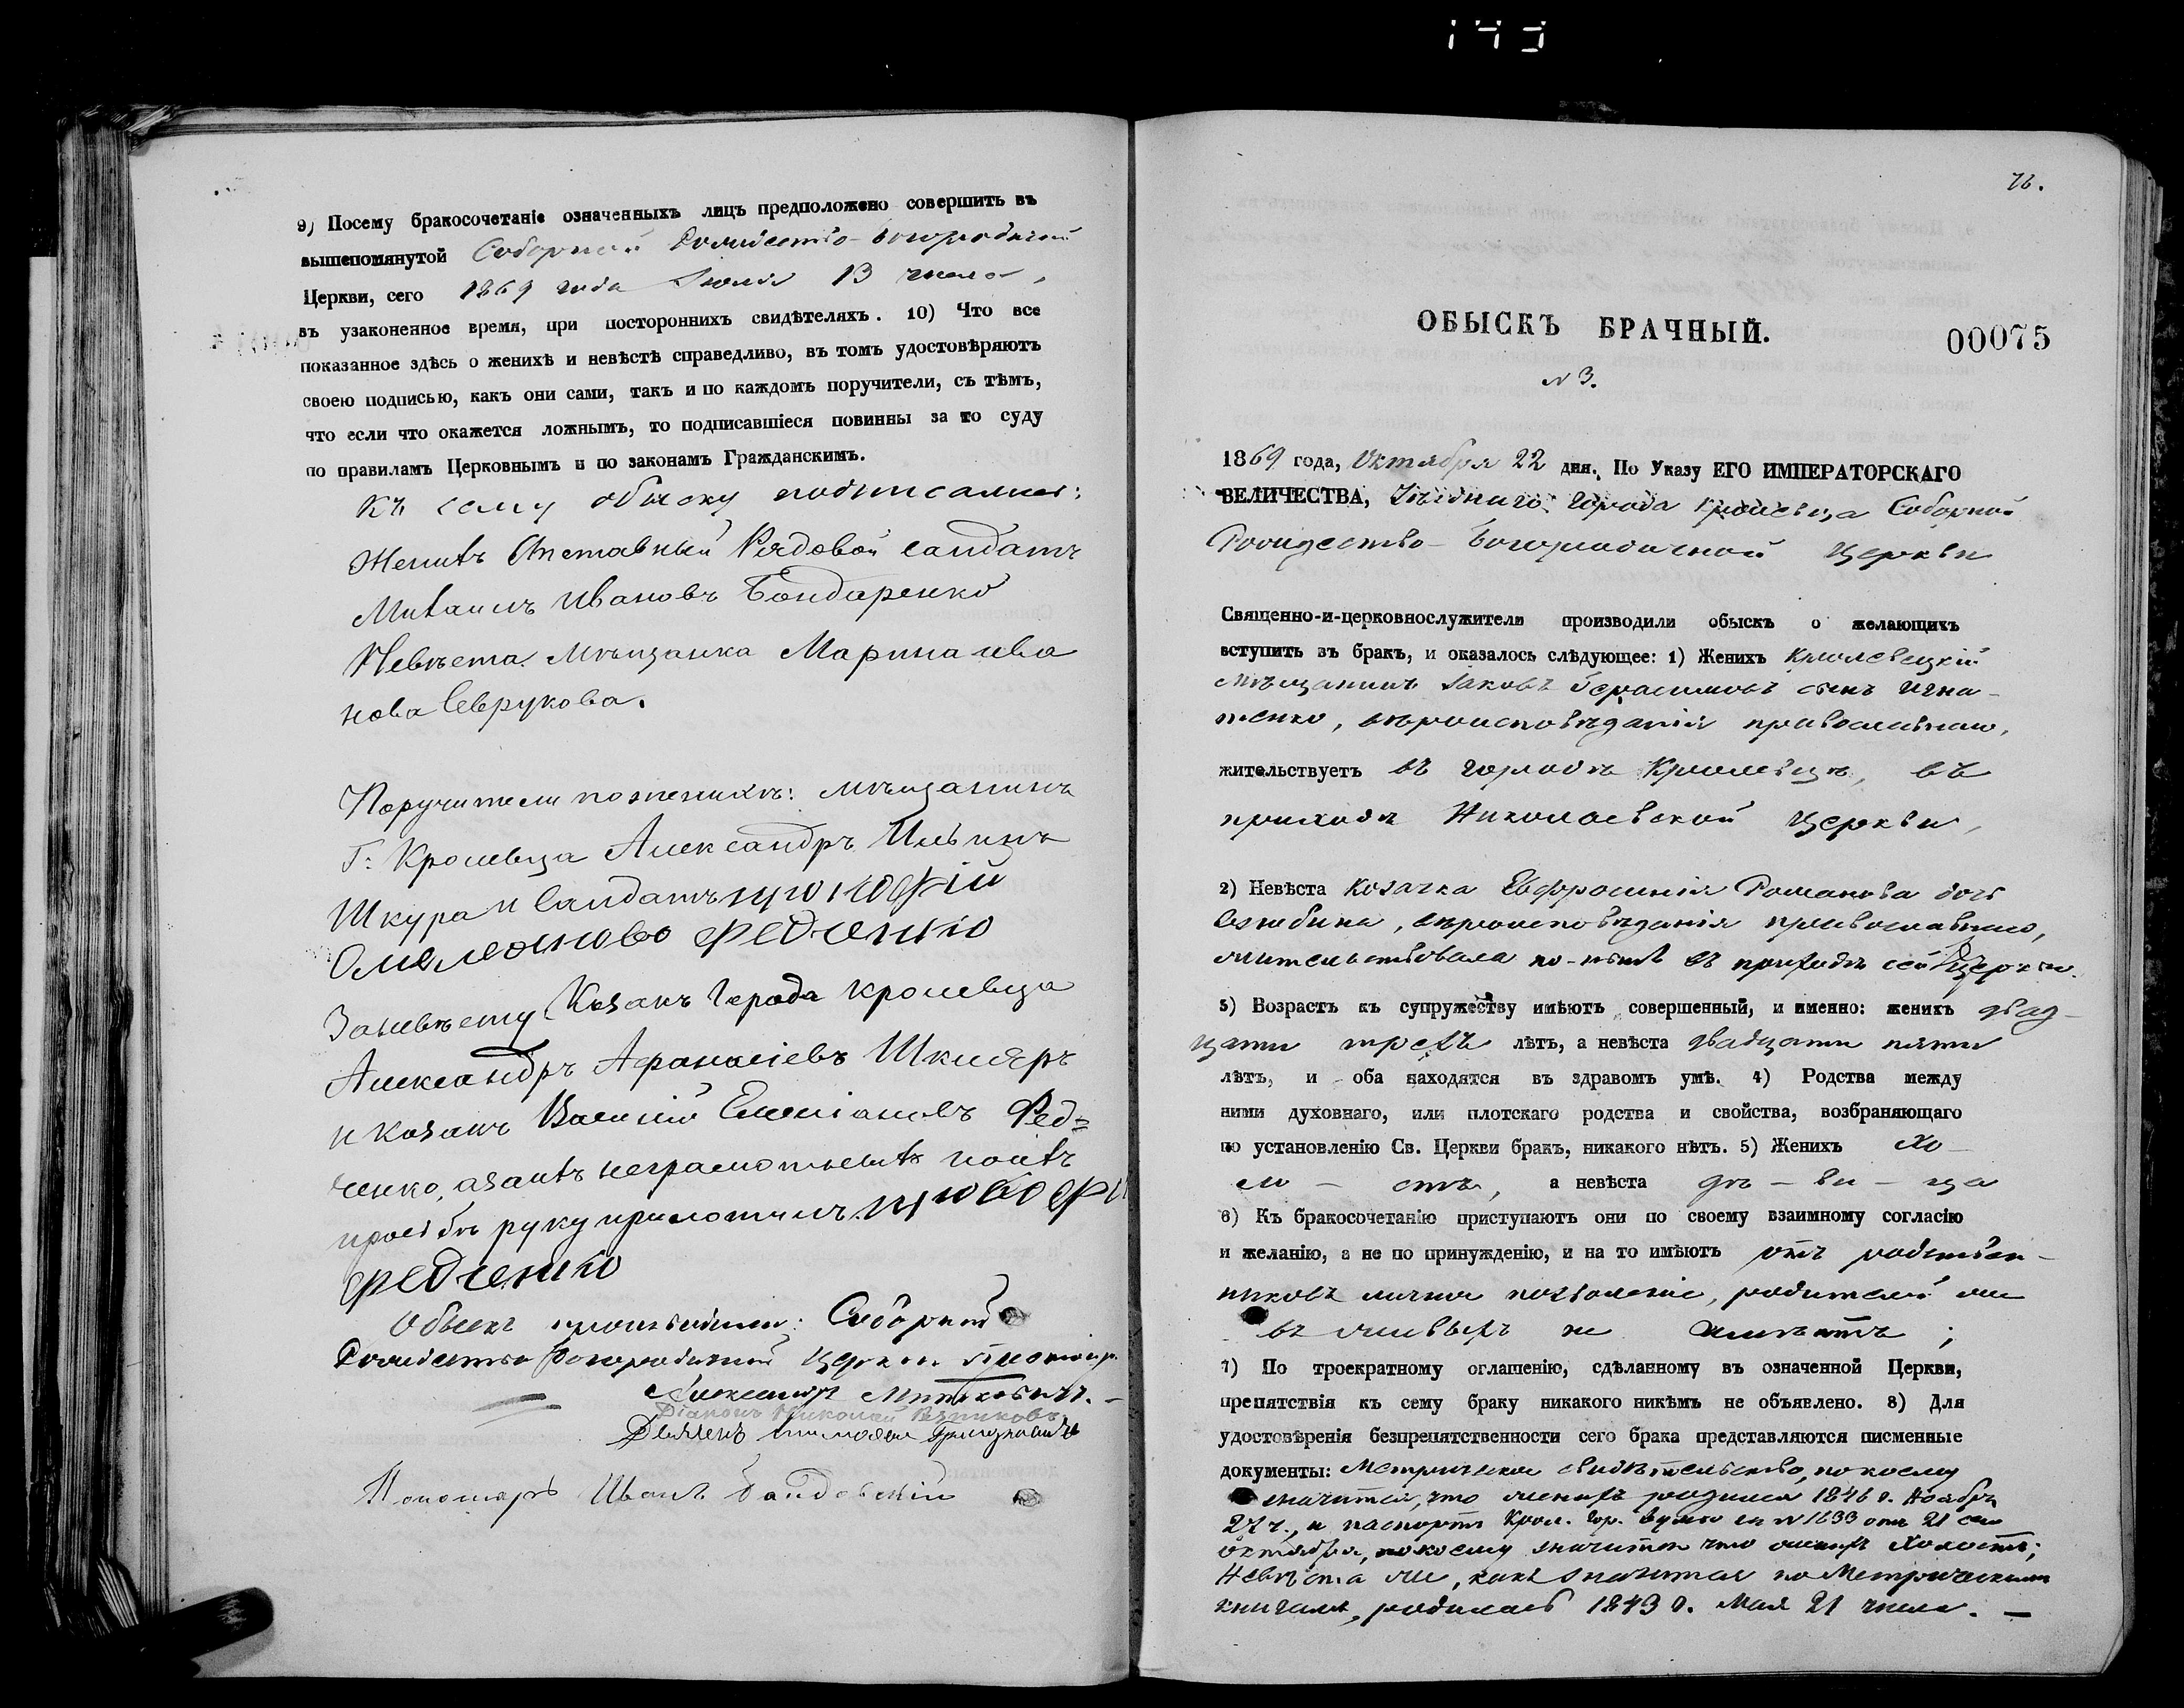 9) Посему бракосочетаніе означенныхъ лицъ предположено совершить въ
вышепомянутой Соборной Рождество-Богородичной
Церкви, сего 1869 года Іюля 13 числа,
въ узаконенное время, при постороннихъ свидѣтеляхъ. 10) Что все
показанное здѣсь о женихѣ и невѣстѣ справедливо, въ томъ удостовѣряютъ
своею подписью, какъ они сами, такъ и по каждомъ поручители, съ тѣмъ,
что если что окажется ложнымъ, то подписавшіеся повинны за то суду
по правиламъ Церковнымъ и по законамъ Гражданскимъ.
Къ сему обыску подписались:
Женихъ Отставный Рядовой салдатъ
Михаилъ Ивановъ Бондаренко
Невѣста Мѣщанка Марина ива
нова Севрукова.
Поручители по женихѣ: мѣщанинъ
Г: Кролевца Александръ Ильинъ
Шкура и Салдатъ
Омеляново Федченко
За невѣсту Козакъ Города Кролевца
Александръ Афанасіевъ Шкляръ
и козакъ Василій Емеліановъ Фед=
ченко, азаихъ неграмотныхъ поихъ
прозбѣ руку приложилъ
Федченко
Обыскъ производили: Соборной
Рождество Богородичной Церкви Протоіер.
Александръ
Діаконъ Николай
Дьячекъ Тимофей
Пономарь Иванъ
76.
ОБЫСКЪ БРАЧНЫЙ.
00075
№ 3.
1869 года, Октября 22 дня. По Указу ЕГО ИМПЕРАТОРСКАГО
ВЕЛИЧЕСТВА, Уѣзднаго города Кролевца Соборной
Рождество-Богородичной Церкви
Священно-и-церковнослужители производили обыскъ о желающихъ
вступить въ бракъ, и оказалось слѣдующее: 1) Женихъ Кролевецкій
мѣщанинъ Іаковъ Герасимовъ сынъ Игна-
тенко, вѣроисповѣданія православнаго,
жительствуетъ въ городѣ Кролевцѣ, въ
приходѣ Николаевской Церкви,
2) Невѣста Козачка Евфросинія Романова дочь
вѣроисповѣданія православнаго,
жительствовала по-нынѣ въ приходѣ сей Церкви.
3) Возрастъ къ супружеству имѣютъ совершенный, и именно: женихъ двад-
цати трехъ лѣтъ, а невѣста двадцати пяти
лѣтъ, и оба находятся въ здравомъ умѣ. 4) Родства между
ними духовнаго, или плотскаго родства и свойства, возбраняющаго
по установленію Св. Церкви бракъ, никакого нѣтъ. 5) Женихъ хо-
ло - стъ, а невѣста дѣ - ви - ца
6) Къ бракосочетанію приступаютъ они по своему взаимному согласію
и желанію, а не по принужденію, и на то имѣютъ отъ родствен-
никовъ личное позволеніе, родителей же
въ живыхъ не имѣютъ;
7) По троекратному оглашенію, сдѣланному въ означенной Церкви,
препятствія къ сему браку никакого никѣмъ не объявлено. 8) Для
удостовѣренія безпрепятственности сего брака представляются писменные
документы: Метрическое свидѣтельство, по коему
значится, что женихъ родился 1846 г. Ноября
27 ч., и паспортъ Крол. Гор. Думы за № 1633 отъ 21 сего
октября, по коему значится что женихъ Холостъ;
Невѣста же, какъ значится по Метрическимъ
книгамъ, родилась 1843 г. Мая 21 числа. —